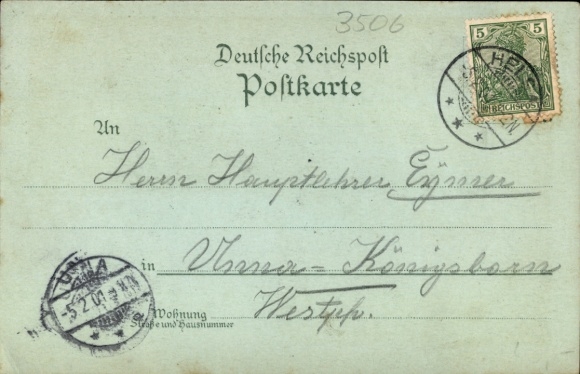 3506
5 5
REICHSPOST
Deutsche Reichspost
Postkarte
An
Herrn Hauptlehrer Eymer
in Unna-Königsborn
Westph.
Wohnung
Straße und Hausnummer
UNNA
-5.2.01